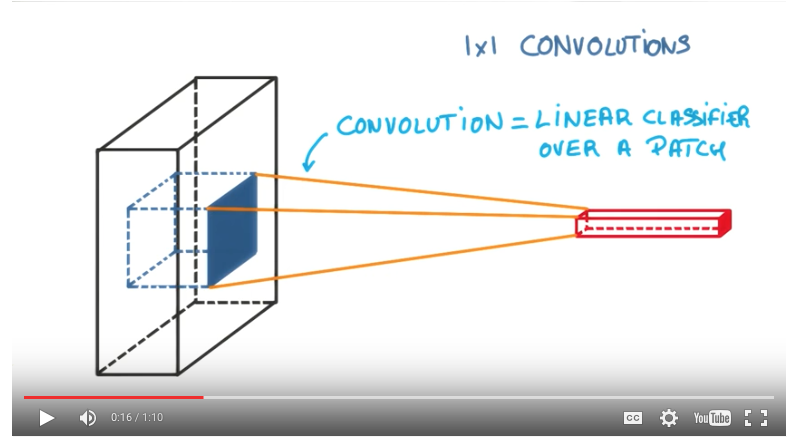 1x1 CONVOLUTIONS
CONVOLUTION = LINEAR CLASSIFIER
OVER A PATCH
0:16 / 1:10
CC
YouTube